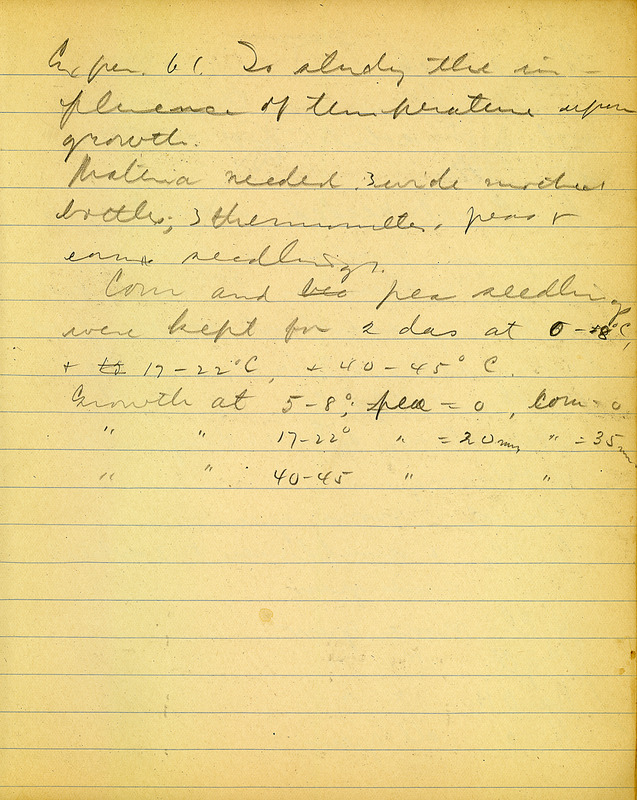 Exper. 61. To study the in-
fluence of temperature upon
growth.
Material needed. 3 wide mouthed
bottles; 3 thermometers, peas &
corn seedlings.
Corn and pea seedlings
were kept for 2 das at 0-8°C,
+ 17-22°C, + 40-45° C.
Growth at 5-8°; pea = 0, corn = 0
" " 17-22° " = 20mm, " = 35mm
" " 40-45 " "